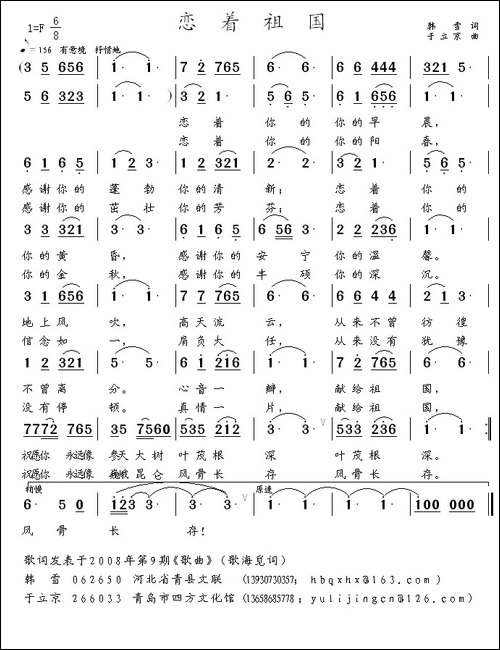 恋着祖国
1=F 6/8
韩雪 词
♪.=156 有意境 抒情地
于立京 曲
(3 5 656 | 1· 1· | 7 2 765 | 6· 6· | 6 6 444 | 321 5 |
5 6 323 | 1· 1·) | 3 2 1 | 5 6 5· | 6 1 656 | 1· 1· |
恋着 你的 你的早晨，
恋着 你的 你的阳春，
6 1 65 | 1 2 3· | 1 2 321 | 6· 6· | 3 2 1 | 5 6 5· |
感谢你的 蓬勃 你的清新； 恋着 你的
感谢你的 茁壮 你的芳芬； 恋着 你的
你的黄昏， 感谢你的 安宁 你的温馨。
你的金秋， 感谢你的 丰硕 你的深沉。
3 1 656 | 1· 1· | 7 7 765 | 6· 6· | 6 6 4 4 | 2 1 3· |
地上风吹， 高天流云， 从来不曾 彷徨
信念如一， 肩负大任， 从来没有 犹豫
1 2 321 | 5· 5· | 6 1 216 | 1· 1· | 7 2 765 | 6· 6· |
不曾离分。 心音一瓣， 献给祖国，
没有停顿。 真情一片， 献给祖国，
7772 765 | 35 7560 | 535 212 | 3· 3· | 533 236 | 1· 1· :|
祝愿你 永远像 参天大树 叶茂根深 叶茂根深。
祝愿你 永远像 巍峨昆仑 风骨长存 风骨长存。
稍慢 原速
6· 5 0 | 123 3· | 3· 3· | 1· 1· | 1· 1· | 100 000 ‖
风骨长存！
歌词发表于2008年第9期《歌曲》（歌海觅词）
韩雪 062650 河北省青县文联 （13930730357； hbqxhx@163.com）
于立京 266033 青岛市四方文化馆（13658685778； yulijingcn@126.com）